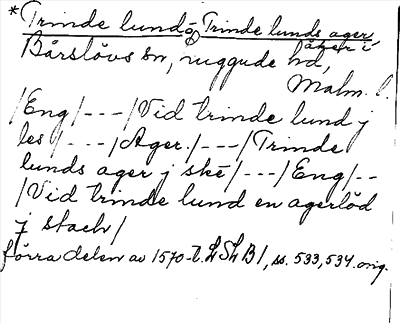 *Trinde lund- o Trinde lunds ager
åker i
Bårslövs sn, ruggude hd,
Malm. l.
/Eng/---/Vid trinde lund j
les/---/Ager./---/Trinde
lunds ager j skē/---/Eng/--
/Vid trinde lund en agerlöd
j stach/
förra delen av 1570-t. LSLB1, ss. 533, 534. orig.